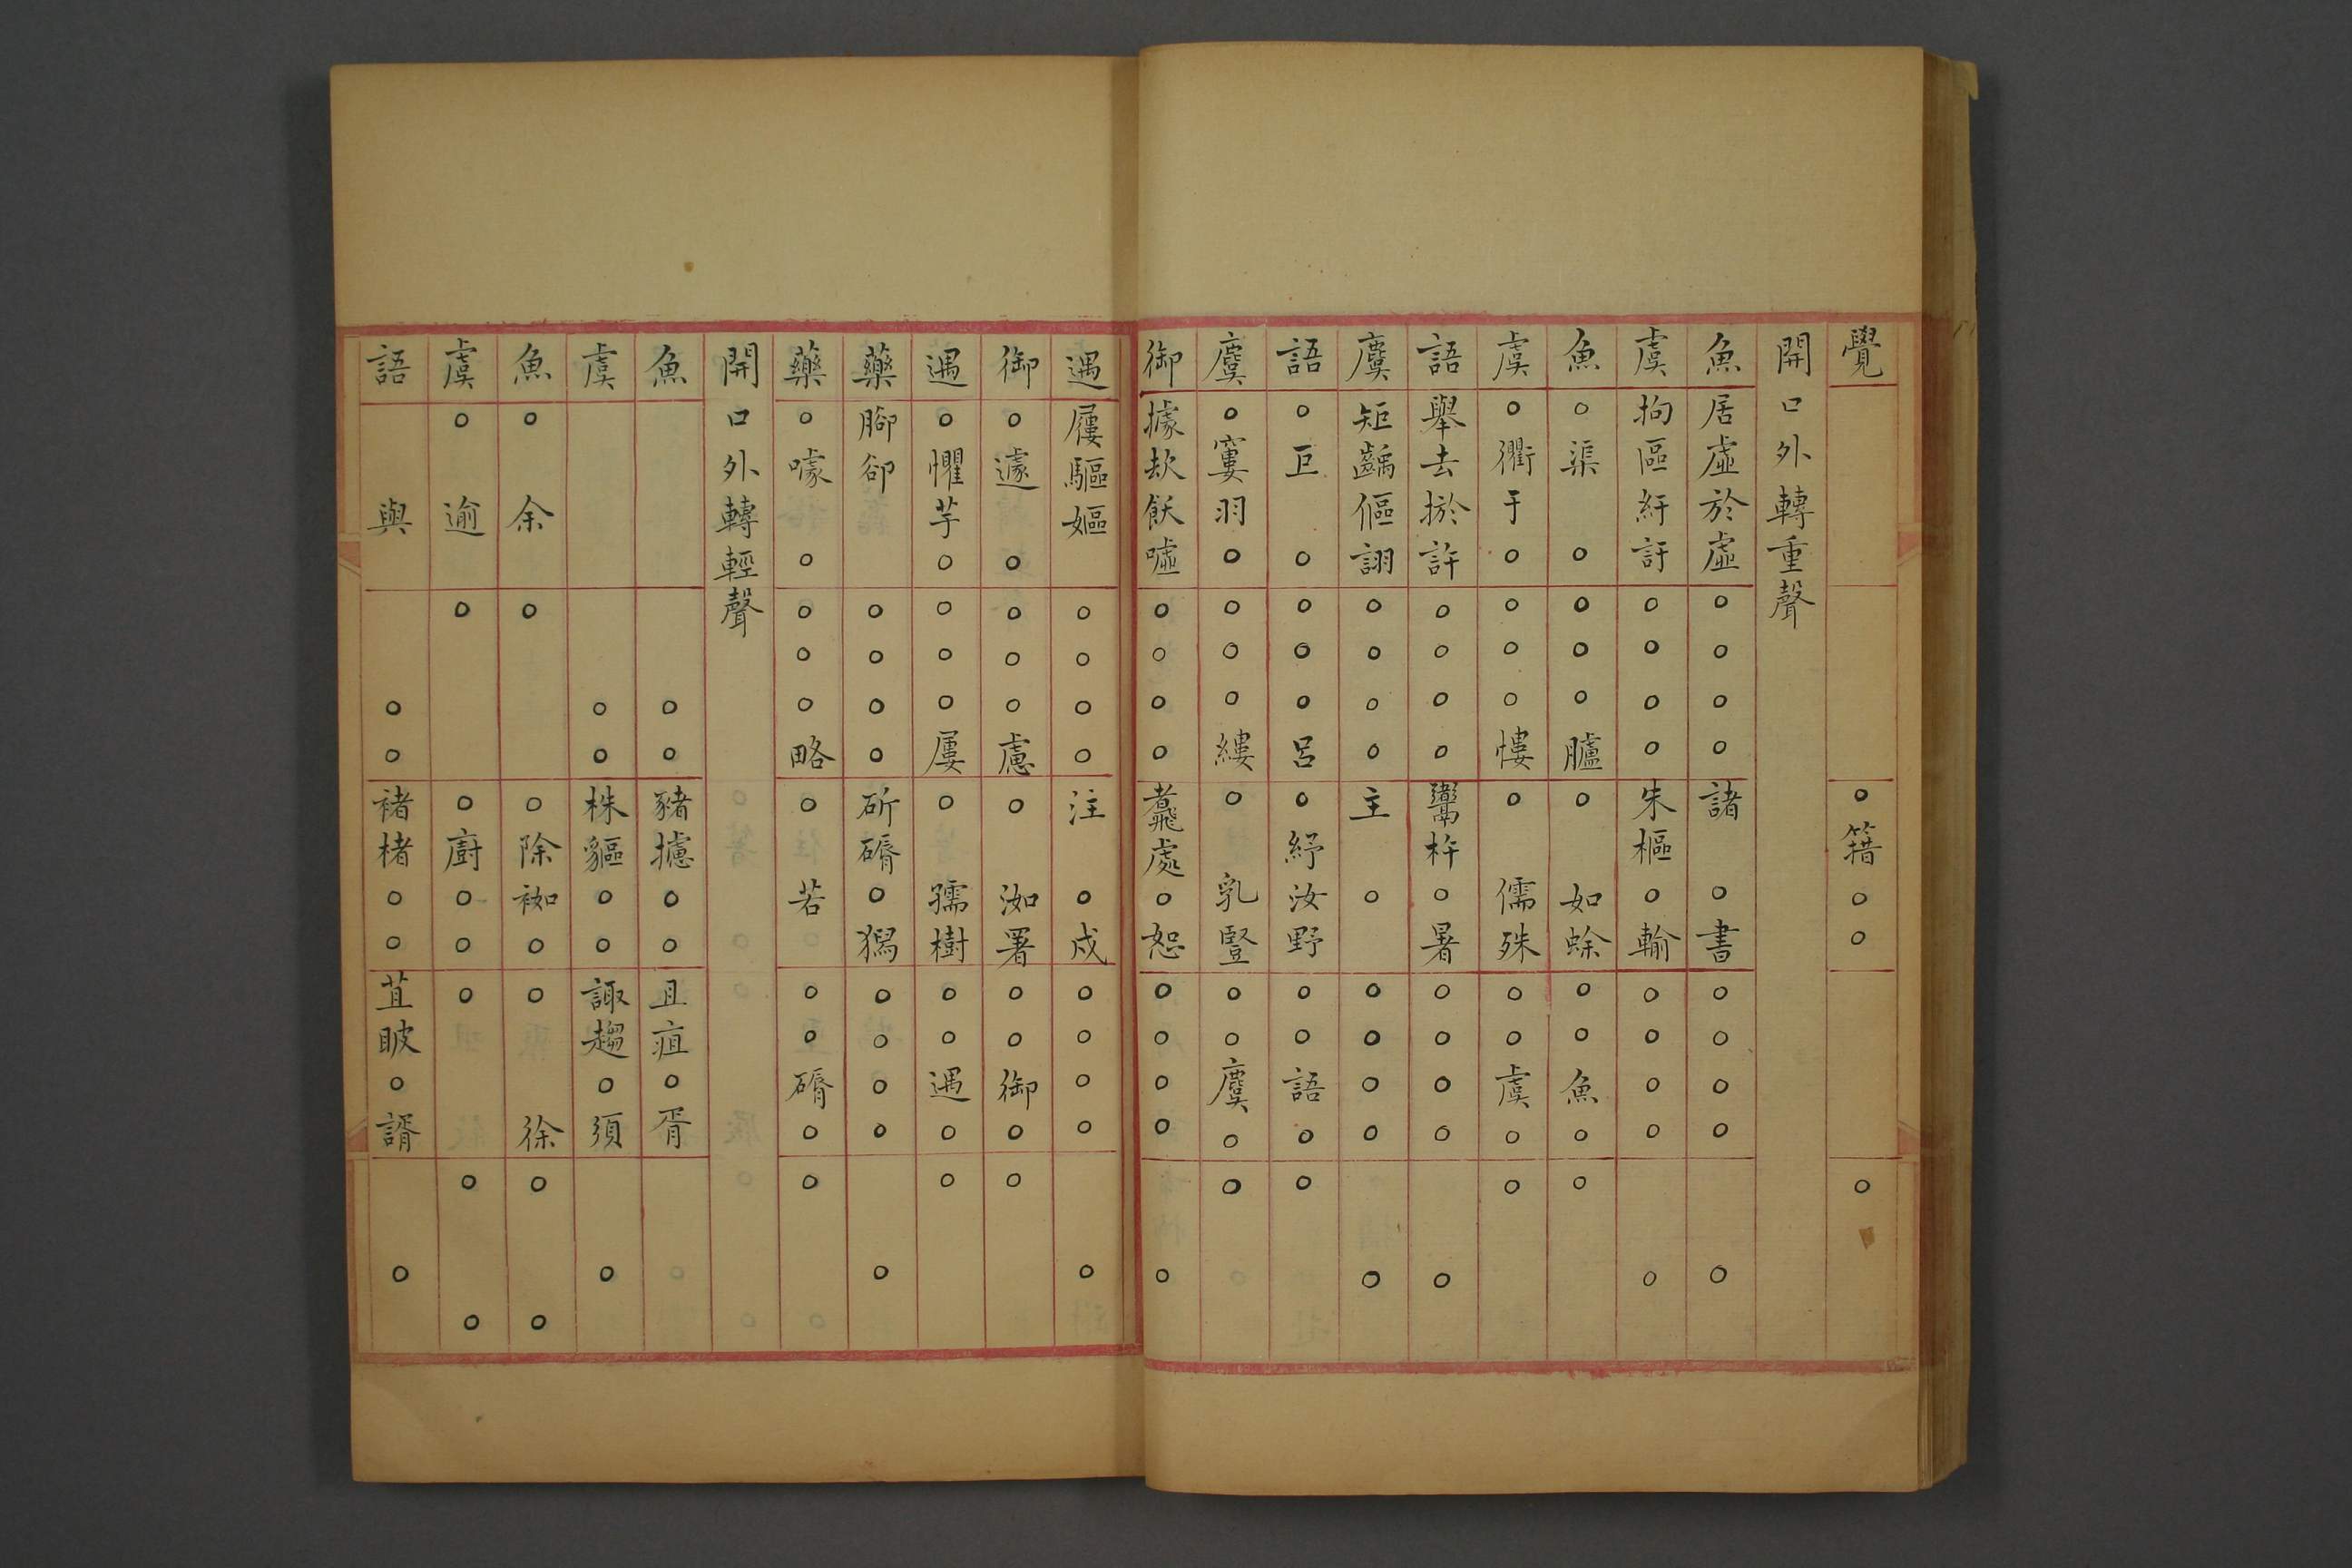 覺○籍○○○
開口外轉重聲
魚居虛於虛○○○○諸○書○○○○○
虞拘區紆訏○○○○朱樞○輸○○○○○
魚○渠○○○○臚○如蜍○○魚○○
虞○衢于○○○○慺○儒殊○○虞○○
語舉去掀許○○○○鬻杵○暑○○○○○
麌矩齲傴詡○○○○主○○○○○○
語○巨○○○○呂○紓汝野○○語○○
麌○窶羽○○○○縷○乳豎○○麌○○
御據㰦飫噓○○○○翥處○恕○○○○○
遇屨驅嫗○○○○注○戍○○○○○
御○遽○○○○慮○洳署○○御○○
遇○懼芋○○○○屢○孺樹○○遇○○
藥腳卻○○○○斫䃗○獡○○○○○
藥○噱○○○○略○若○○䃗○○
開口外轉輕聲
魚○○豬攄○○且疽○胥
虞○○株貙○○諏趨○須○
魚○余○○除袽○○徐○○
虞○逾○○廚○○○○○
語與○○褚楮○○苴䀹○諝○